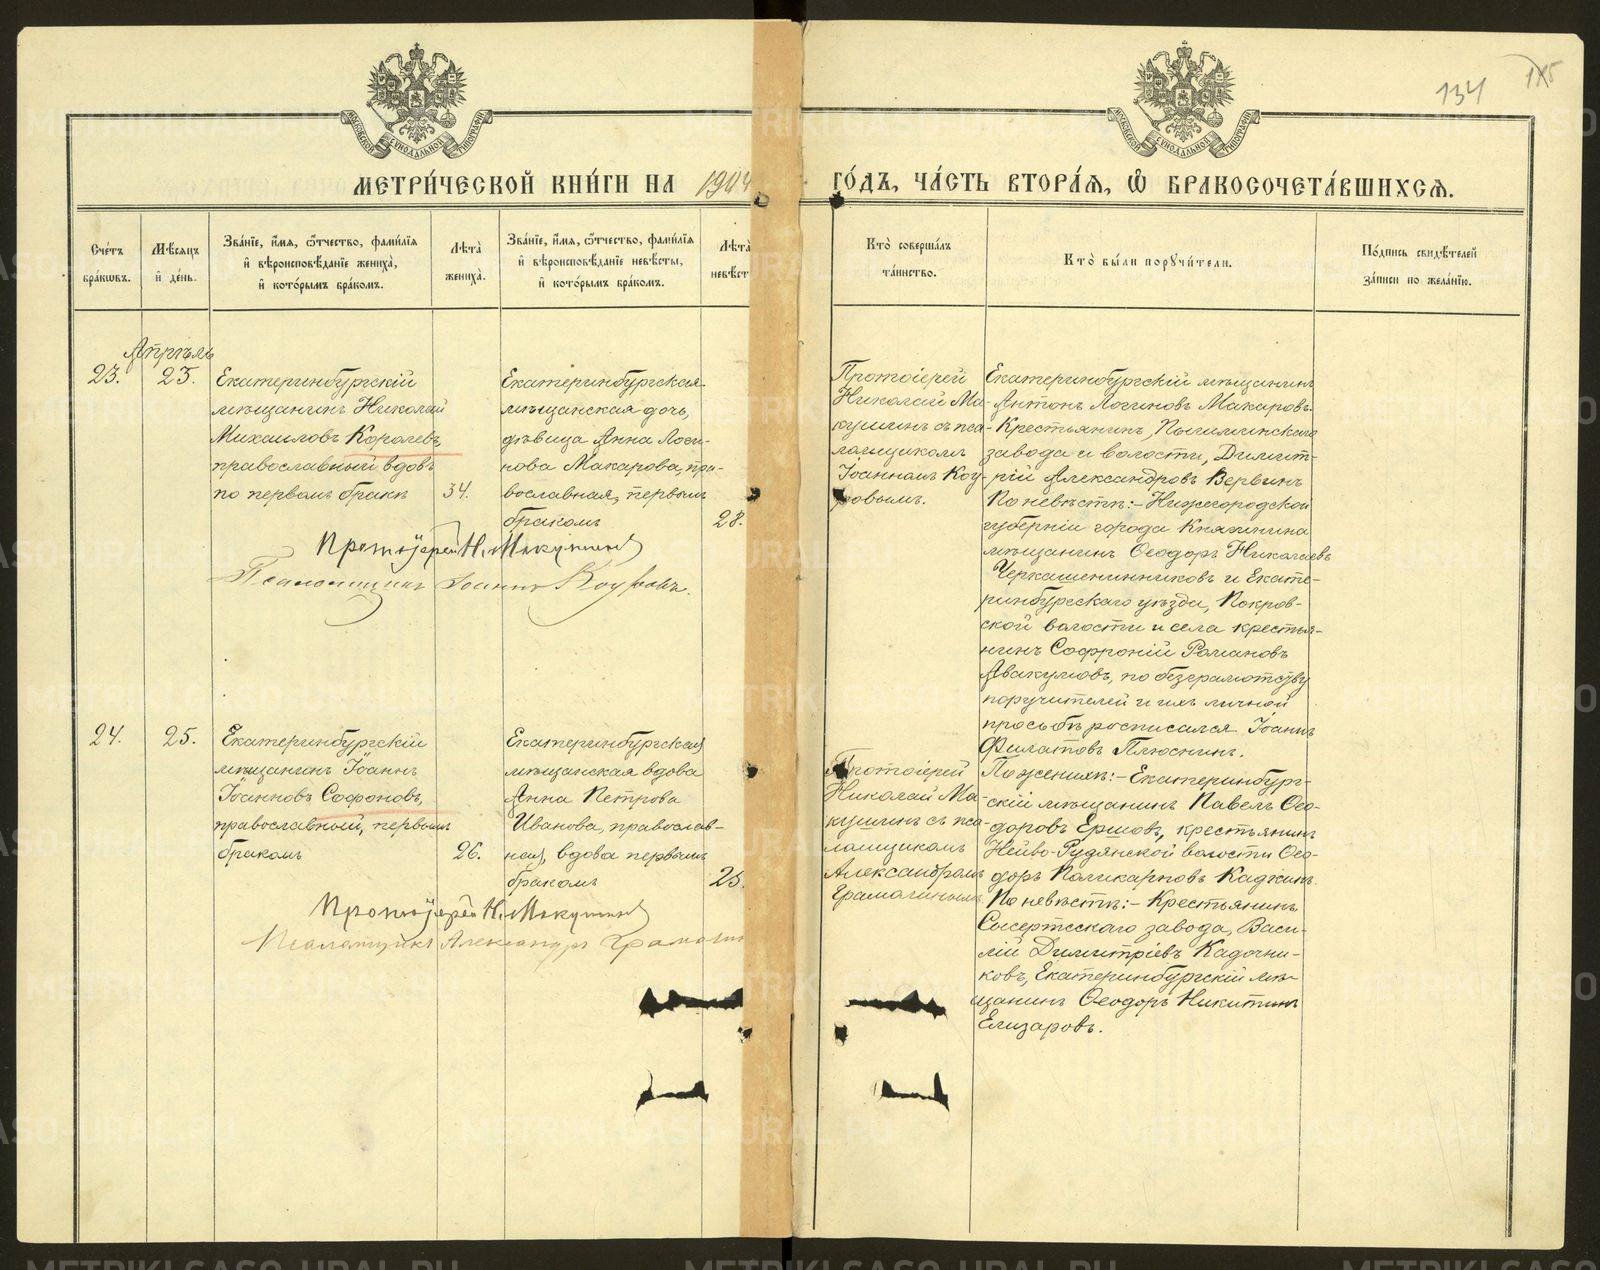 134
МОСКОВСКОЙ СѴНОДАЛЬНОЙ ТИПОГРАФІИ
МОСКОВСКОЙ СѴНОДАЛЬНОЙ ТИПОГРАФІИ
МЕТРИ́ЧЕСКОЙ КНИ́ГИ НА 1904
ГО́ДЪ, ЧА́СТЬ ВТОРА́Я, Ѽ БРАКОСОЧЕТА́ВШИХСѦ.
Сче́тъ бра́кѡвъ.
Мѣ́сяцъ и҆ де́нь.
Зва́нїе, и҆́мя, ѻ҆́тчество, фами́лїя и҆ вѣроисповѣ́данїе жениха̀, и҆ кото́рымъ бра́комъ.
Лѣта̀ жениха̀.
Зва́нїе, и҆́мя, ѻ҆́тчество, фами́лїя и҆ вѣроисповѣ́данїе невѣ́сты, и҆ кото́рымъ бра́комъ.
Лѣта̀ невѣст
Кто̀ соверша́лъ та́инство.
Кто̀ бы́ли порꙋчи́тели.
По́дпись свидѣ́телей за́писи по жела́нїю.
Апрѣль
23.
23.
Екатеринбургскій
мѣщанинъ Николай
Михаиловъ Королевъ,
православный вдовъ
по первомъ бракѣ
34.
Екатеринбургская
мѣщанская дочь,
дѣвица Анна Логи-
нова Макарова, пра-
вославная, первымъ
бракомъ
28.
Протоіерей Н. Макушинъ
Псаломщикъ Іоаннъ Коуровъ.
Протоіерей
Николай Ма-
кушинъ съ пса-
ломщикомъ
Іоанномъ Коу-
ровымъ.
Екатеринбургскій мѣщанинъ
Антонъ Логиновъ Макаровъ.
Крестьянинъ, Пышминскаго
завода и волости, Димит-
рій Александровъ Вервинъ
По невѣстѣ: – Нижегородской
губерніи города Княгинина
мѣщанинъ Ѳеодоръ Николаевъ
Черкашенинниковъ и Екате-
ринбургскаго уѣзда, Покров-
ской волости и села крестья-
нинъ Софроній Романовъ
Авакумовъ, по безграмотству
поручителей и ихъ личной
просьбѣ росписался Іоаннъ
Филатовъ Плюснинъ.
24.
25.
Екатеринбургскій
мѣщанинъ Іоаннъ
Іоанновъ Софоновъ,
православный, первымъ
бракомъ
26.
Екатеринбургская
мѣщанская вдова
Анна Петрова
Иванова, православ-
ная, вдова первымъ
бракомъ
25.
Протоіерей Н. Макушинъ
Псаломщикъ Александръ Грамолин
Протоіерей
Николай Ма-
кушинъ съ пса-
ломщикомъ
Александромъ
Грамолинымъ
По женихѣ: – Екатеринбург-
скій мѣщанинъ Павелъ Ѳео-
доровъ Ершовъ, крестьянинъ
Нейво-Рудянской волости Ѳео-
доръ Поликарповъ Кадкинъ.
По невѣстѣ: – Крестьянинъ
Сысертскаго завода, Васи-
лій Димитріевъ Кадочни-
ковъ, Екатеринбургскій мѣ-
щанинъ Ѳеодоръ Никитинъ
Елизаровъ.
METRIKI.GASO-URAL.RU